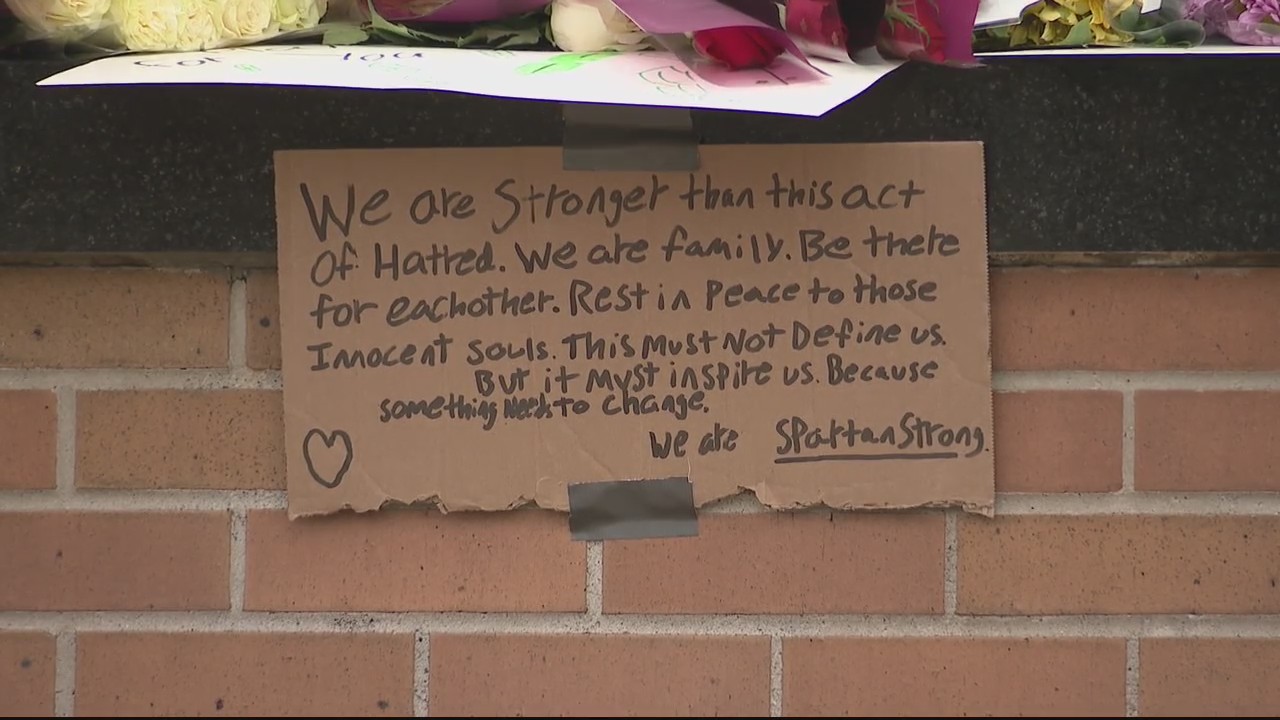 for you
We are Stronger than this act
Of Hatred. We are family. Be there
for eachother. Rest in Peace to those
Innocent souls. This Must Not Define us.
But it Myst inspire us. Because
something Needs to change.
We are SpartanStrong.